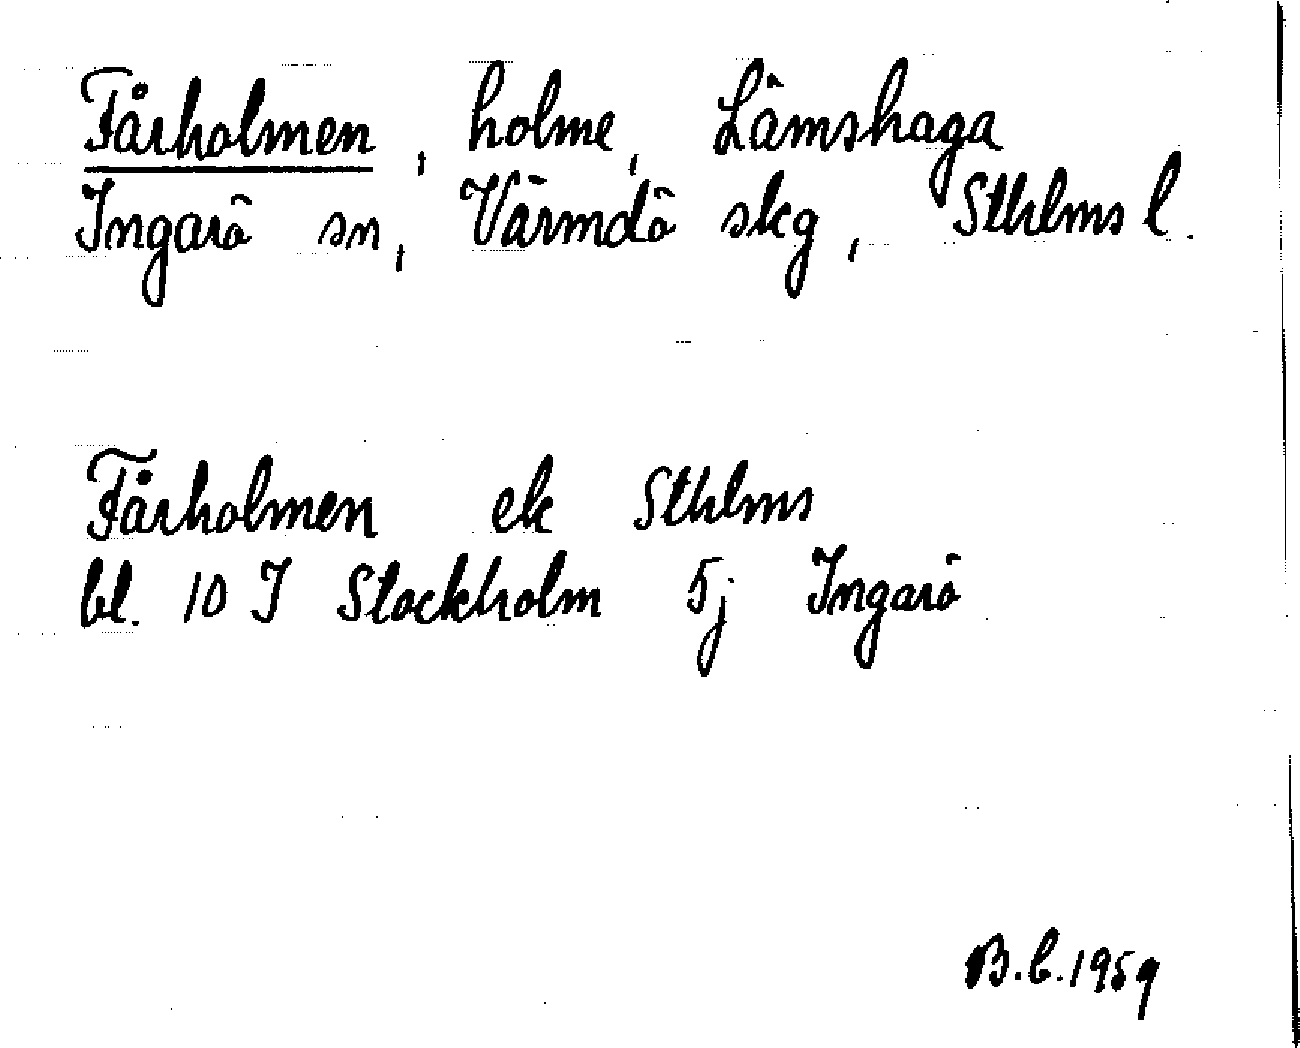 Fårholmen, holme, Lämshaga
Ingarö sn, Värmdö skg, Sthlms l.
Fårholmen ek Sthlms
bl. 10 I Stockholm 5j Ingarö
B.C.1959